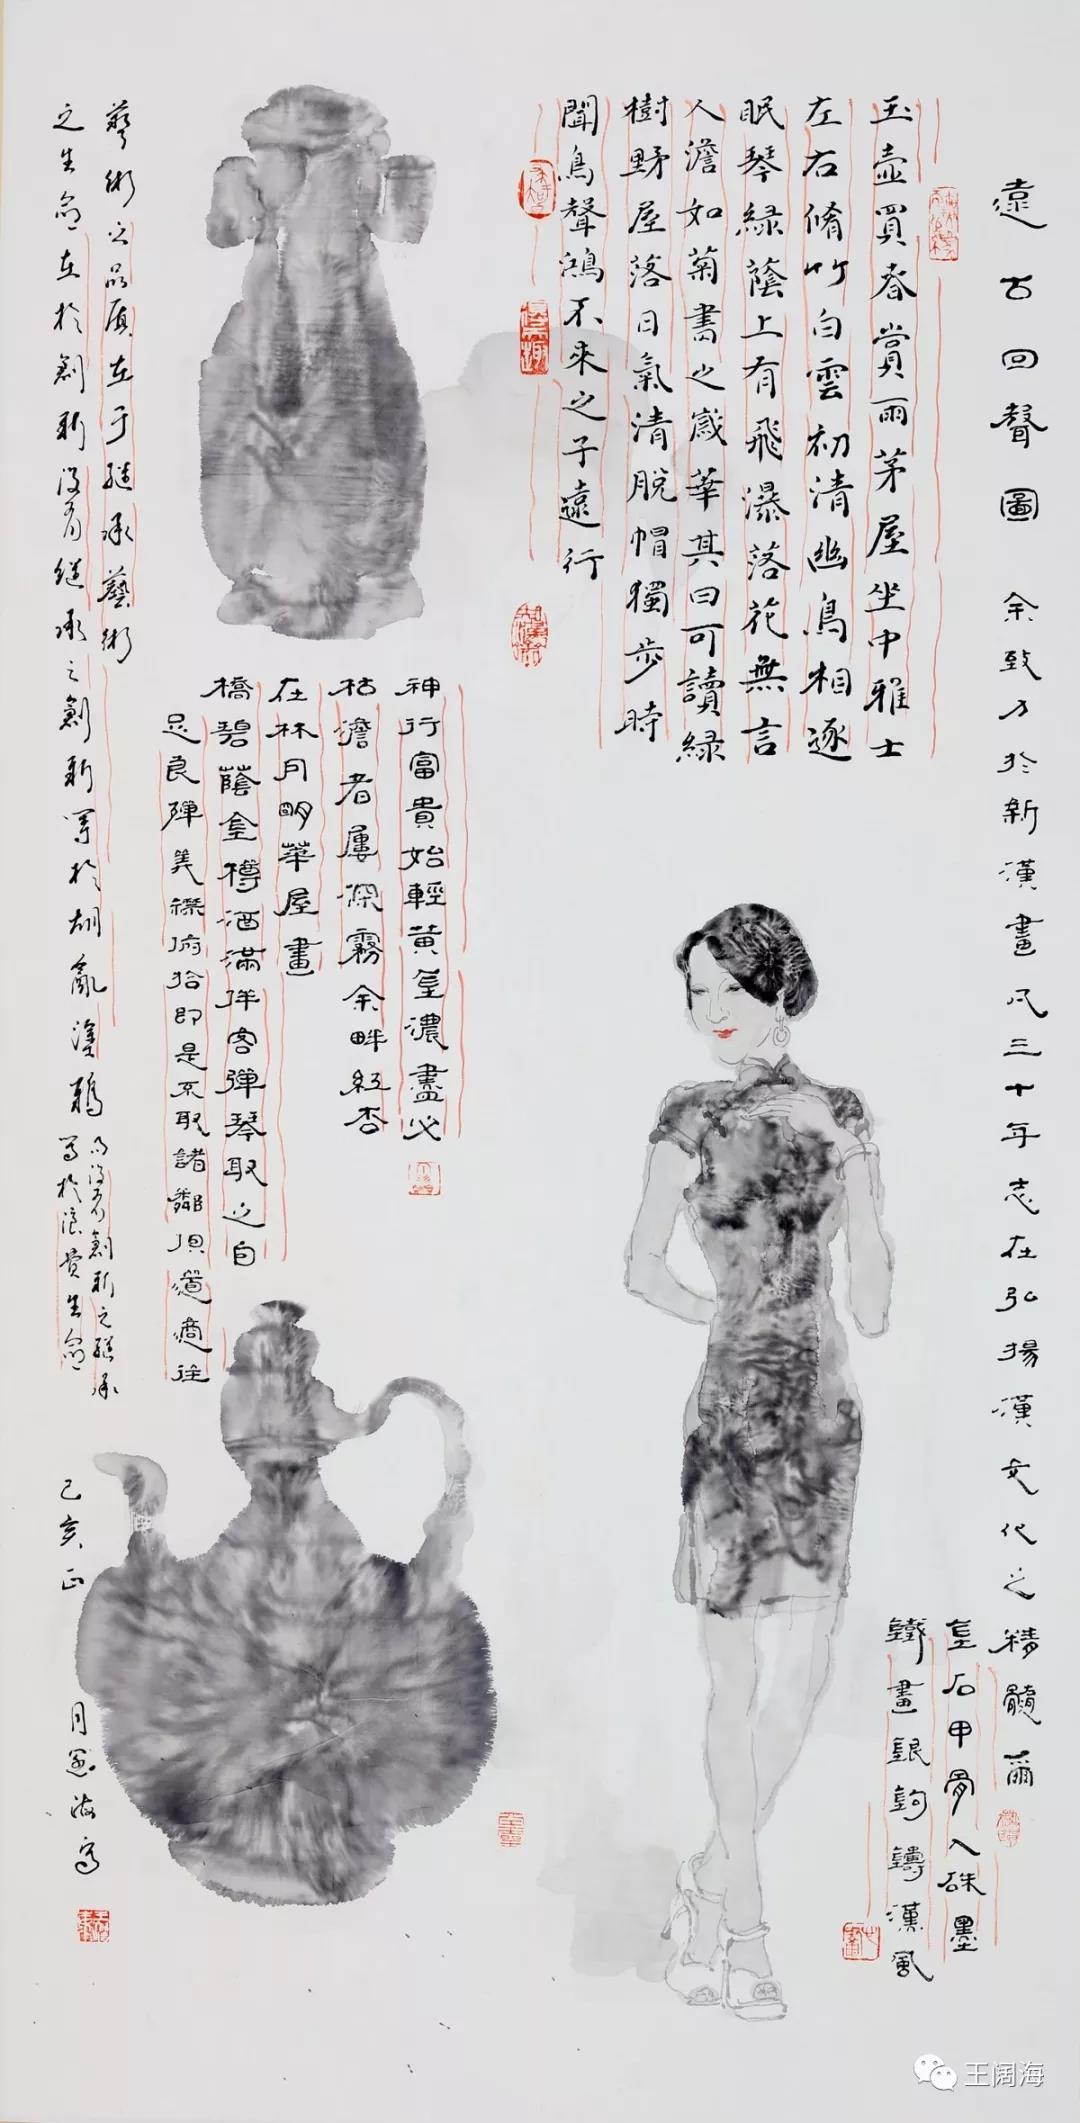 遠古回聲圖 余致力於新漢畫凡三十年志在弘揚漢文化之精髓爾
金石甲骨入硃墨
鐵畫銀鉤鑄漢風
玉壺買春賞雨茅屋坐中雅士
左右脩竹白雲初清幽鳥相逐
眠琴綠蔭上有飛瀑落花無言
人澹如菊書之歲華其曰可讀綠
樹野屋落日氣清脫帽獨步時
聞鳥聲鴻不來之子遠行
神行富貴始輕黄金濃盡必
枯澹者屢深霧余畔紅杏
在林月明華屋畫
橋碧蔭金樽酒滿伴客彈琴取之自
足良殫美襟俯拾即是不取諸鄰俱道適往
藝術之品质在于继承藝術
之生命在於創新没有继承之創新等於胡亂塗鴉
而没有創新之继承
等於浪費生命
己亥正月阔海寫
王阔海